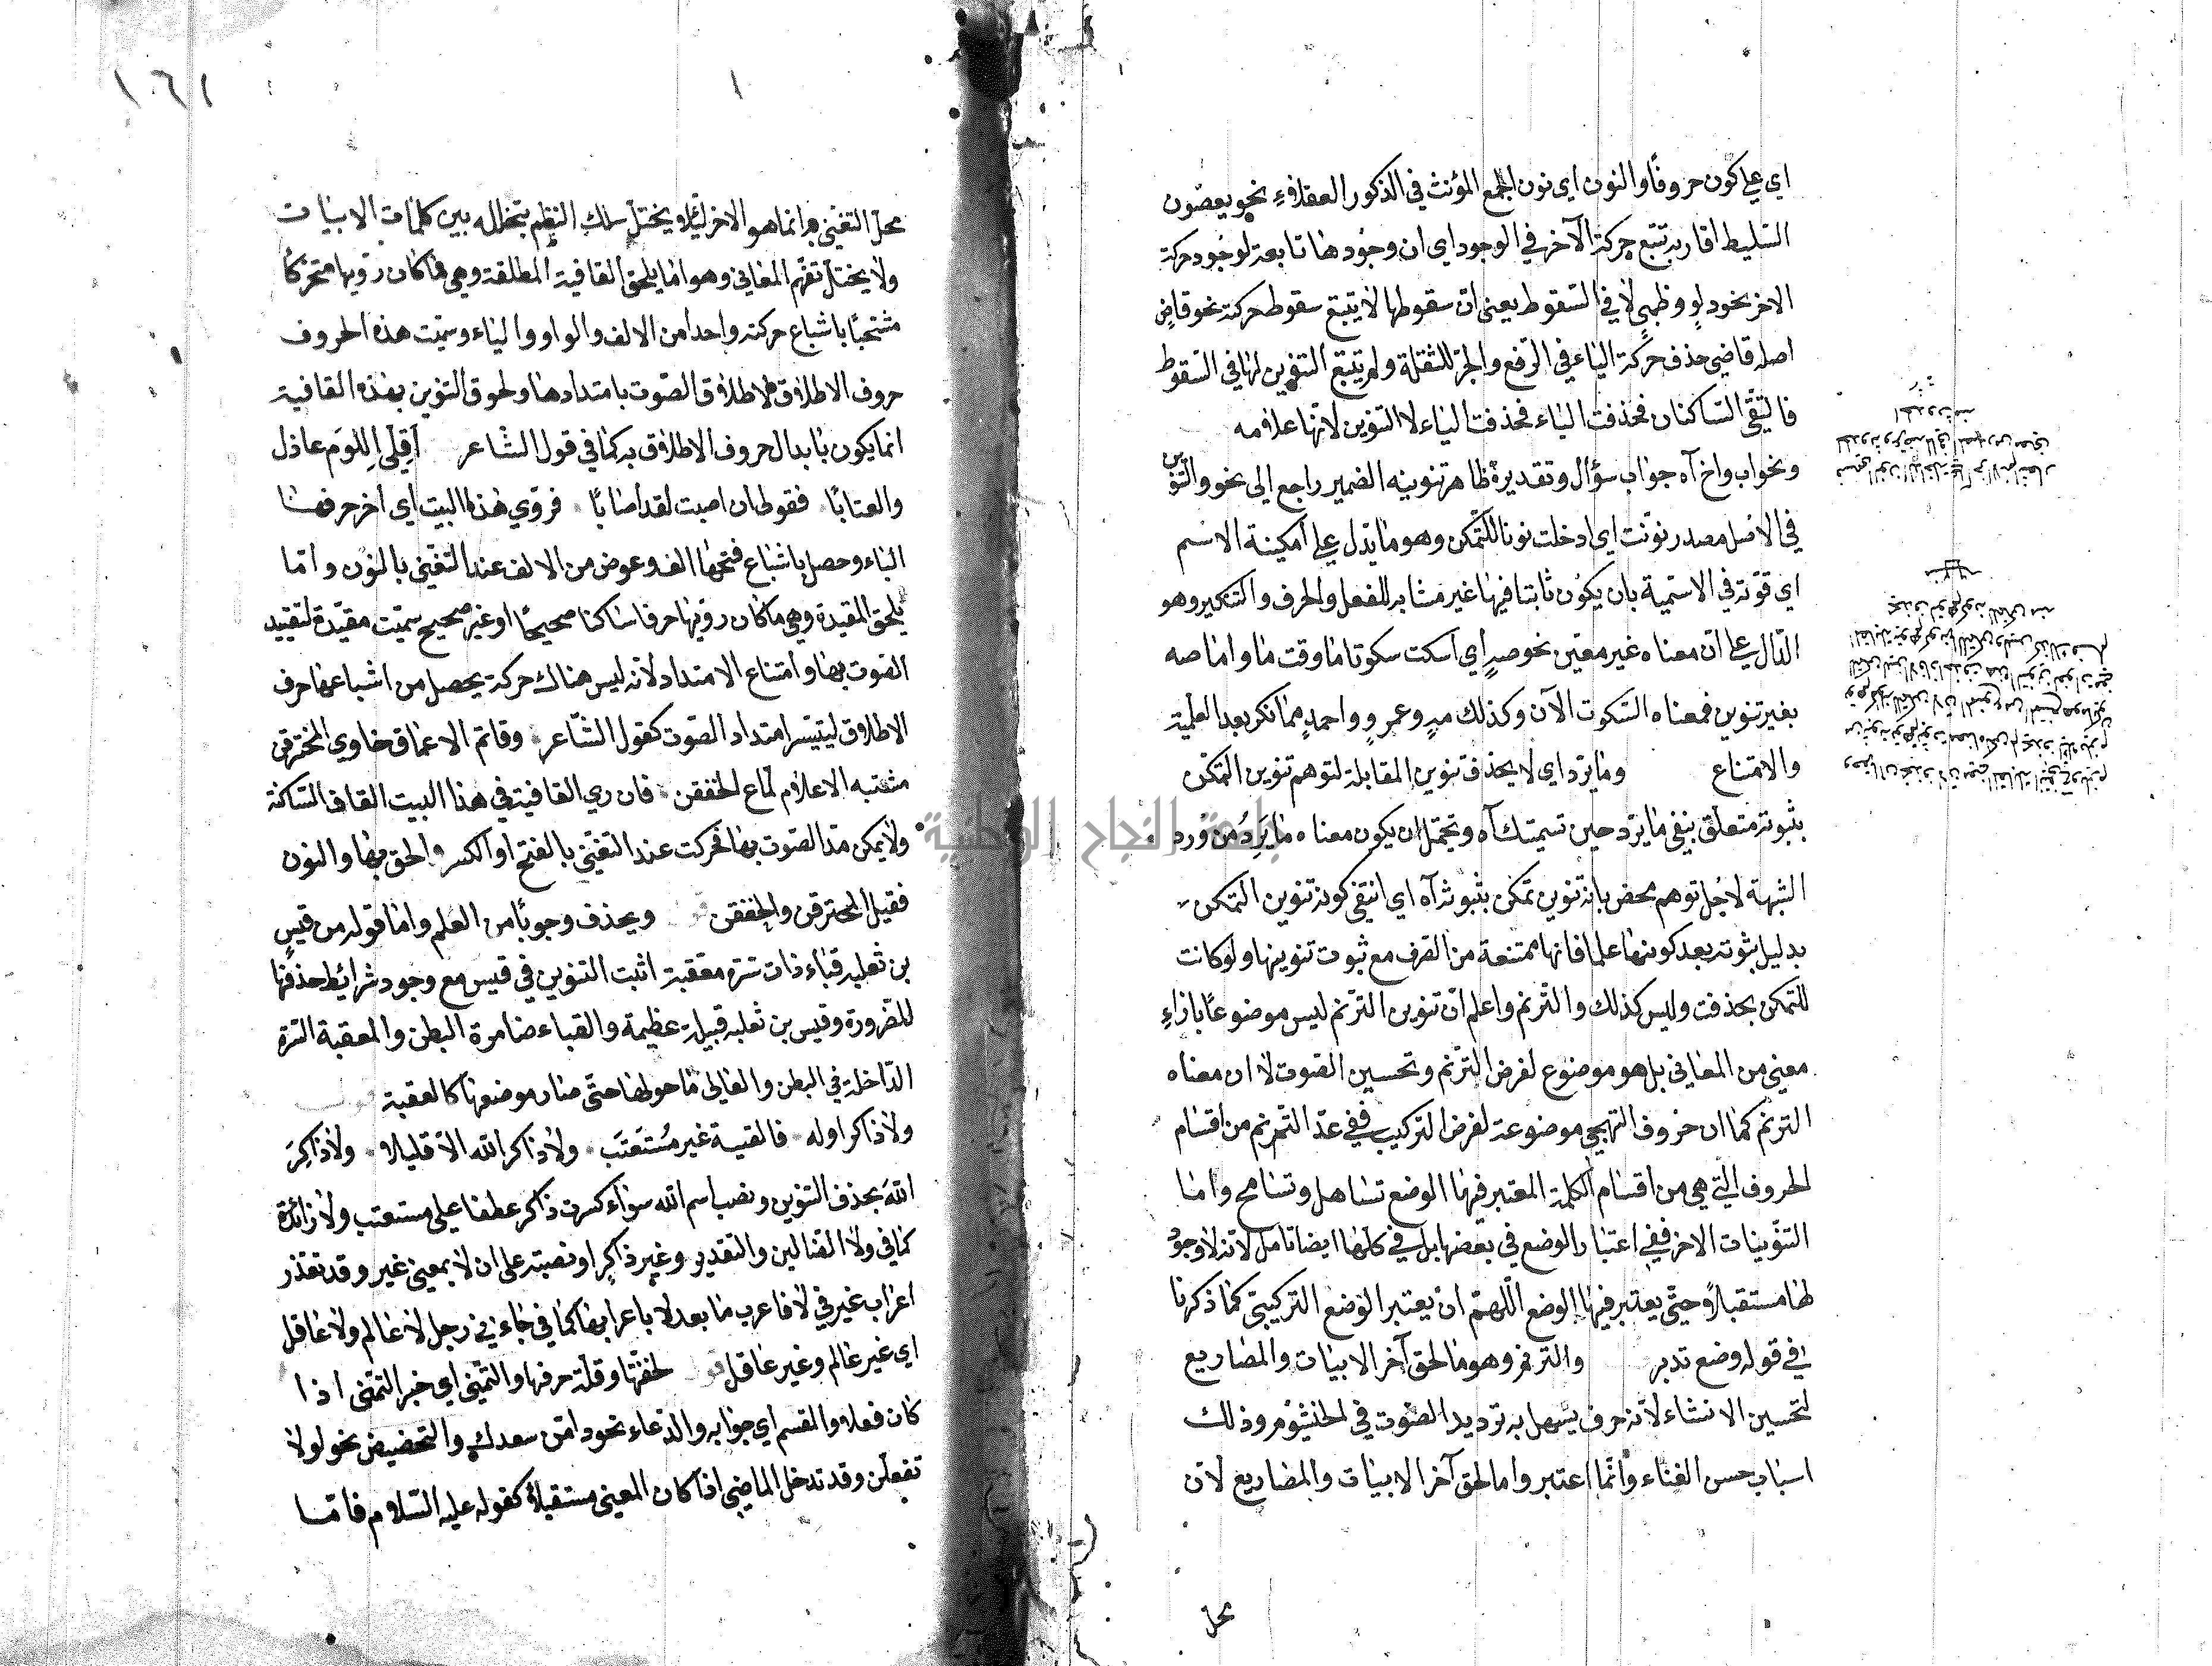 اي علي كون حروفا والنون اي نون الجمع المؤنث في الذكور العقلاء نحو يعصون
السليط اقاربه تتبع حركة الآخر في الوجود اي ان وجودها تابعة لوجود حركة
الاخر نحو دلو وظبي لا في السقوط يعني ان سقوطها لا يتبع سقوط حركة نحو قاض
اصله قاضي حذف حركة الياء في الرفع والجر للثقلة ولم يتبع التنوين لها في السقوط
فالتقي الساكنان فحذفت الياء فحذفت الياء لا التنوين لانها علامه
ونحو اب واخ آه جواب سؤال وتقديره ظاهر تنوينه الضمير راجع الى نحو والتنوين
في الاصل مصدر نونت اي ادخلت نونا للتمكن وهو ما يدل علي امكنية الاسم
اي قوته في الاسمية بان يكون ثابتا فيها غير مشابه للفعل والحرف والتنكير وهو
الدال علي ان معناه غير معين نحو صه اي اسكت سكوتا ما وقت ما واما صه
بغير تنوين فمعناه السكوت الآن وكذلك مه وعمرو واحمد مما نكر بعد العلمية
والامتناع وما يرد اي لا يحذف تنوين المقابلة لتوهم تنوين التمكن
بثبوته متعلق بنفي ما يرد حين تسميتك آه ويحتمل ان يكون معناه ما يرد من ورد
الشبهة لاجل توهم محض بانه تنوين تمكن بثبوته آه اي انتفي كونه تنوين التمكن
بدليل ثبوته بعد كونها علما فانها ممتنعة من الصرف مع ثبوت تنوينها ولو كانت
للتمكن بحذفت وليس كذلك والترنم واعلم ان تنوين الترنم ليس موضوعا بازاء
معني من المعاني بل هو موضوع لغرض الترنم وتحسين الصوت لا ان معناه
الترنم كما ان حروف التهجي موضوعة لغرض التركيب ففي عد الترنم من اقسام
الحروف التي هي من اقسام الكلمة المعتبر فيها الوضع تساهل وتسامح واما
التنوينات الاخر ففي اعتبار الوضع في بعضها بل في كلها ايضا تامل لانه لا وجود
لها مستقبلا حتي يعتبر فيها الوضع اللهم ان يعتبر الوضع التركيبي كما ذكرنا
في قوله وضع تدبر والترنم وهو ما لحق آخر الابيات والمصاريع
لتحسين الانشاء لانه حرف يسهل به ترديد الصوت في الخيشوم وذلك
اسباب حسن الغناء وانما اعتبروا ما لحق آخر الابيات والمصاريع لان
محل
١٦١
محل التغني وانما هو الاخر لئلا يختل سلك النظم بتخلله بين كلمات الابيات
ولا يختل تفهم المعاني وهو اما يلحق القافية المطلقة وهي ما كان رويها متحركا
مشبعا باشباع حركته واحدا من الالف والواو والياء وسميت هذه الحروف
حروف الاطلاق لاطلاق الصوت بامتدادها ولحوق التنوين بهذه القافية
انما يكون بابدال حروف الاطلاق به كما في قول الشاعر أقلي اللوم عاذل
والعتابا فقولي ان اصبت لقد اصابا فروي هذه البيت اي آخر حرفها
الباء وحصل باشباع فتحها الف وعوض من الالف عند التغني بالنون واما
يلحق المقيدة وهي ما كان رويها حرفا ساكنا صحيحا او غير صحيح سميت مقيدة لتقييد
الصوت بها وامتناع الامتداد لانه ليس هناك حركة يحصل من اشباعها حرف
الاطلاق ليتيسر امتداد الصوت كقول الشاعر وقاتم الاعماق خاوي المخترقن
مشتبه الاعلام لماع الخفقن فان روي القافية في هذا البيت القاف الساكنة
ولا يمكن مد الصوت بها فحركت عند التغني بالفتح او الكسر والحق بها والنون
فقيل المخترقن والخفقن ويحذف وجوبا من العلم واما قوله من قيس
بن ثعلبه قباء ذات سرة مقعبة اثبت التنوين في قيس مع وجود شرائط حذفها
للضرورة وقيس بن ثعلبه قبيلة عظيمة والقباء ضامرة البطن والمعقبة السرة
الداخلة في البطن والعالي ما حولها حتي صار موضعها كالعقبة
ولا ذاكر اوله فالفيته غير مستعتب ولا ذاكر الله الا قليلا ولا ذاكر
الله بحذف التنوين ونصب اسم الله سواء كسرت ذاكر عطفا علي مستعتب ولا زائدة
كما في ولا الضالين والتقدير وغير ذاكر او نصبته علي ان لا بمعني غير وقد تعذر
اعراب غير في لا فاعرب ما بعد لا باعرابها كما في جاءني رجل لا عالم ولا عاقل
اي غير عالم وغير عاقل لخفتها وقلة حرفها والتمني اي خبر التمني اذا
كان فعلا والقسم اي جوابه والدعاء نحو دامن سعدك والتحضيض نحو لولا
تفعلن وقد تدخل الماضي اذا كان المعني مستقبلا كقوله عليه السلام فاما
جامعة النجاح الوطنية